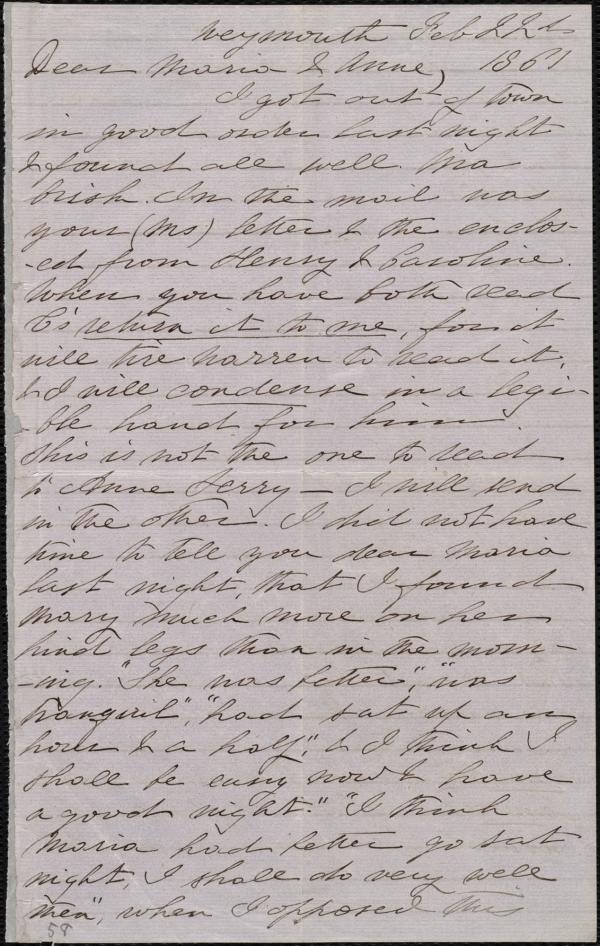 Weymouth Feb 22d
Dear Maria & Anne, 1861
I got out of town
in good order last night
& found all well. Ma
brisk. In the mail was
your (Ms) letter & the enclos-
-ed from Henry & Caroline.
When you have both read
C's return it to me, for it
will tire Warren to read it,
& I will condense in a legi-
-ble hand for him.
This is not the one to read
to Anne Terry - I will send
in the other. I did not have
time to tell you dear Maria
last night, that I found
Mary much more on her
hind legs than in the morn-
-ing. "She was better", "was
tranquil", "had sat up an
hour & a half", "& I think I
shall be easy now & have
a good night." "I think
Maria had better go sat
night, I shall do very well
then", when I opposed this
58